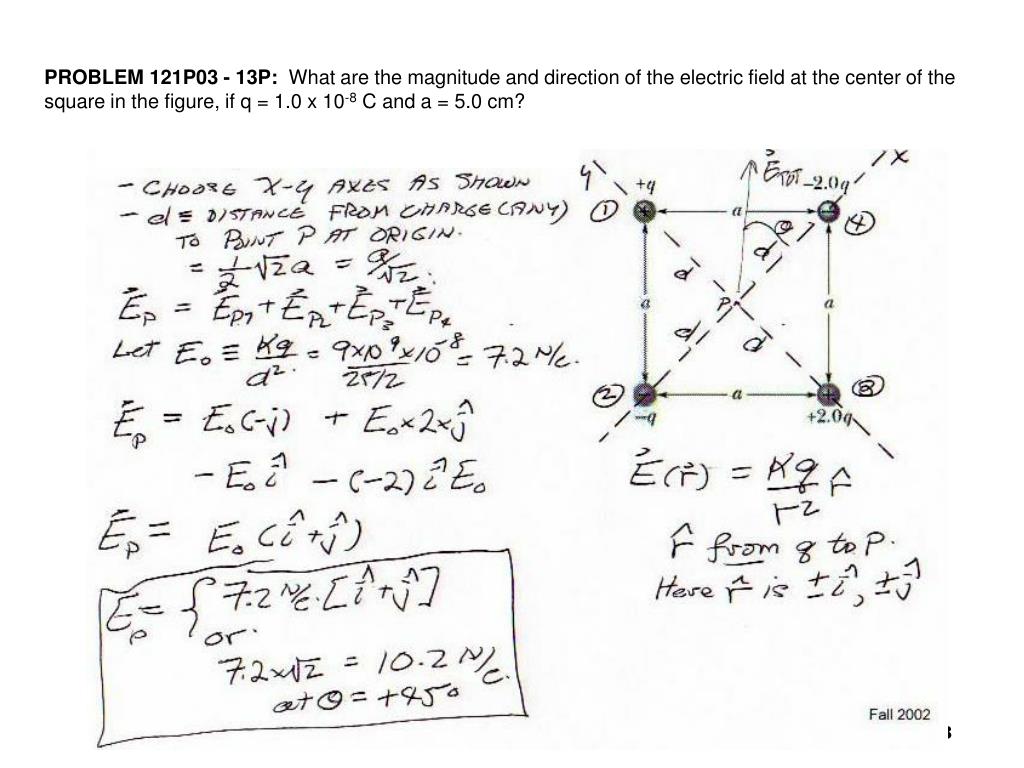 PROBLEM 121P03 - 13P: What are the magnitude and direction of the electric field at the center of the
square in the figure, if q = 1.0 x 10⁻⁸ C and a = 5.0 cm?
- CHOOSE X-Y AXES AS SHOWN
- d ≡ DISTANCE FROM CHARGE (ANY)
TO POINT P AT ORIGIN.
= 1/2 √2 a = a/√2.
E⃗p = E⃗p1 + E⃗p2 + E⃗p3 + E⃗p4
Let E₀ ≡ Kq/d² = 9x10⁹x10⁻⁸/25/2 = 7.2 N/C.
E⃗p = E₀(-j) + E₀x2xĵ
- E₀ î - (-2) î E₀
E⃗p = E₀ (î+ĵ)
E⃗p = { 7.2 N/C. [î+ĵ]
or
7.2x√2 = 10.2 N/C.
at θ = +45°
y
x
E⃗TOT
① +q
a
-2.0q ④
θ
d
d
a
P
a
d
d
② -q
a
+2.0q ③
E⃗(r⃗) = Kq/r² r̂
r̂ from q to P.
Here r̂ is ±î, ±ĵ
Fall 2002